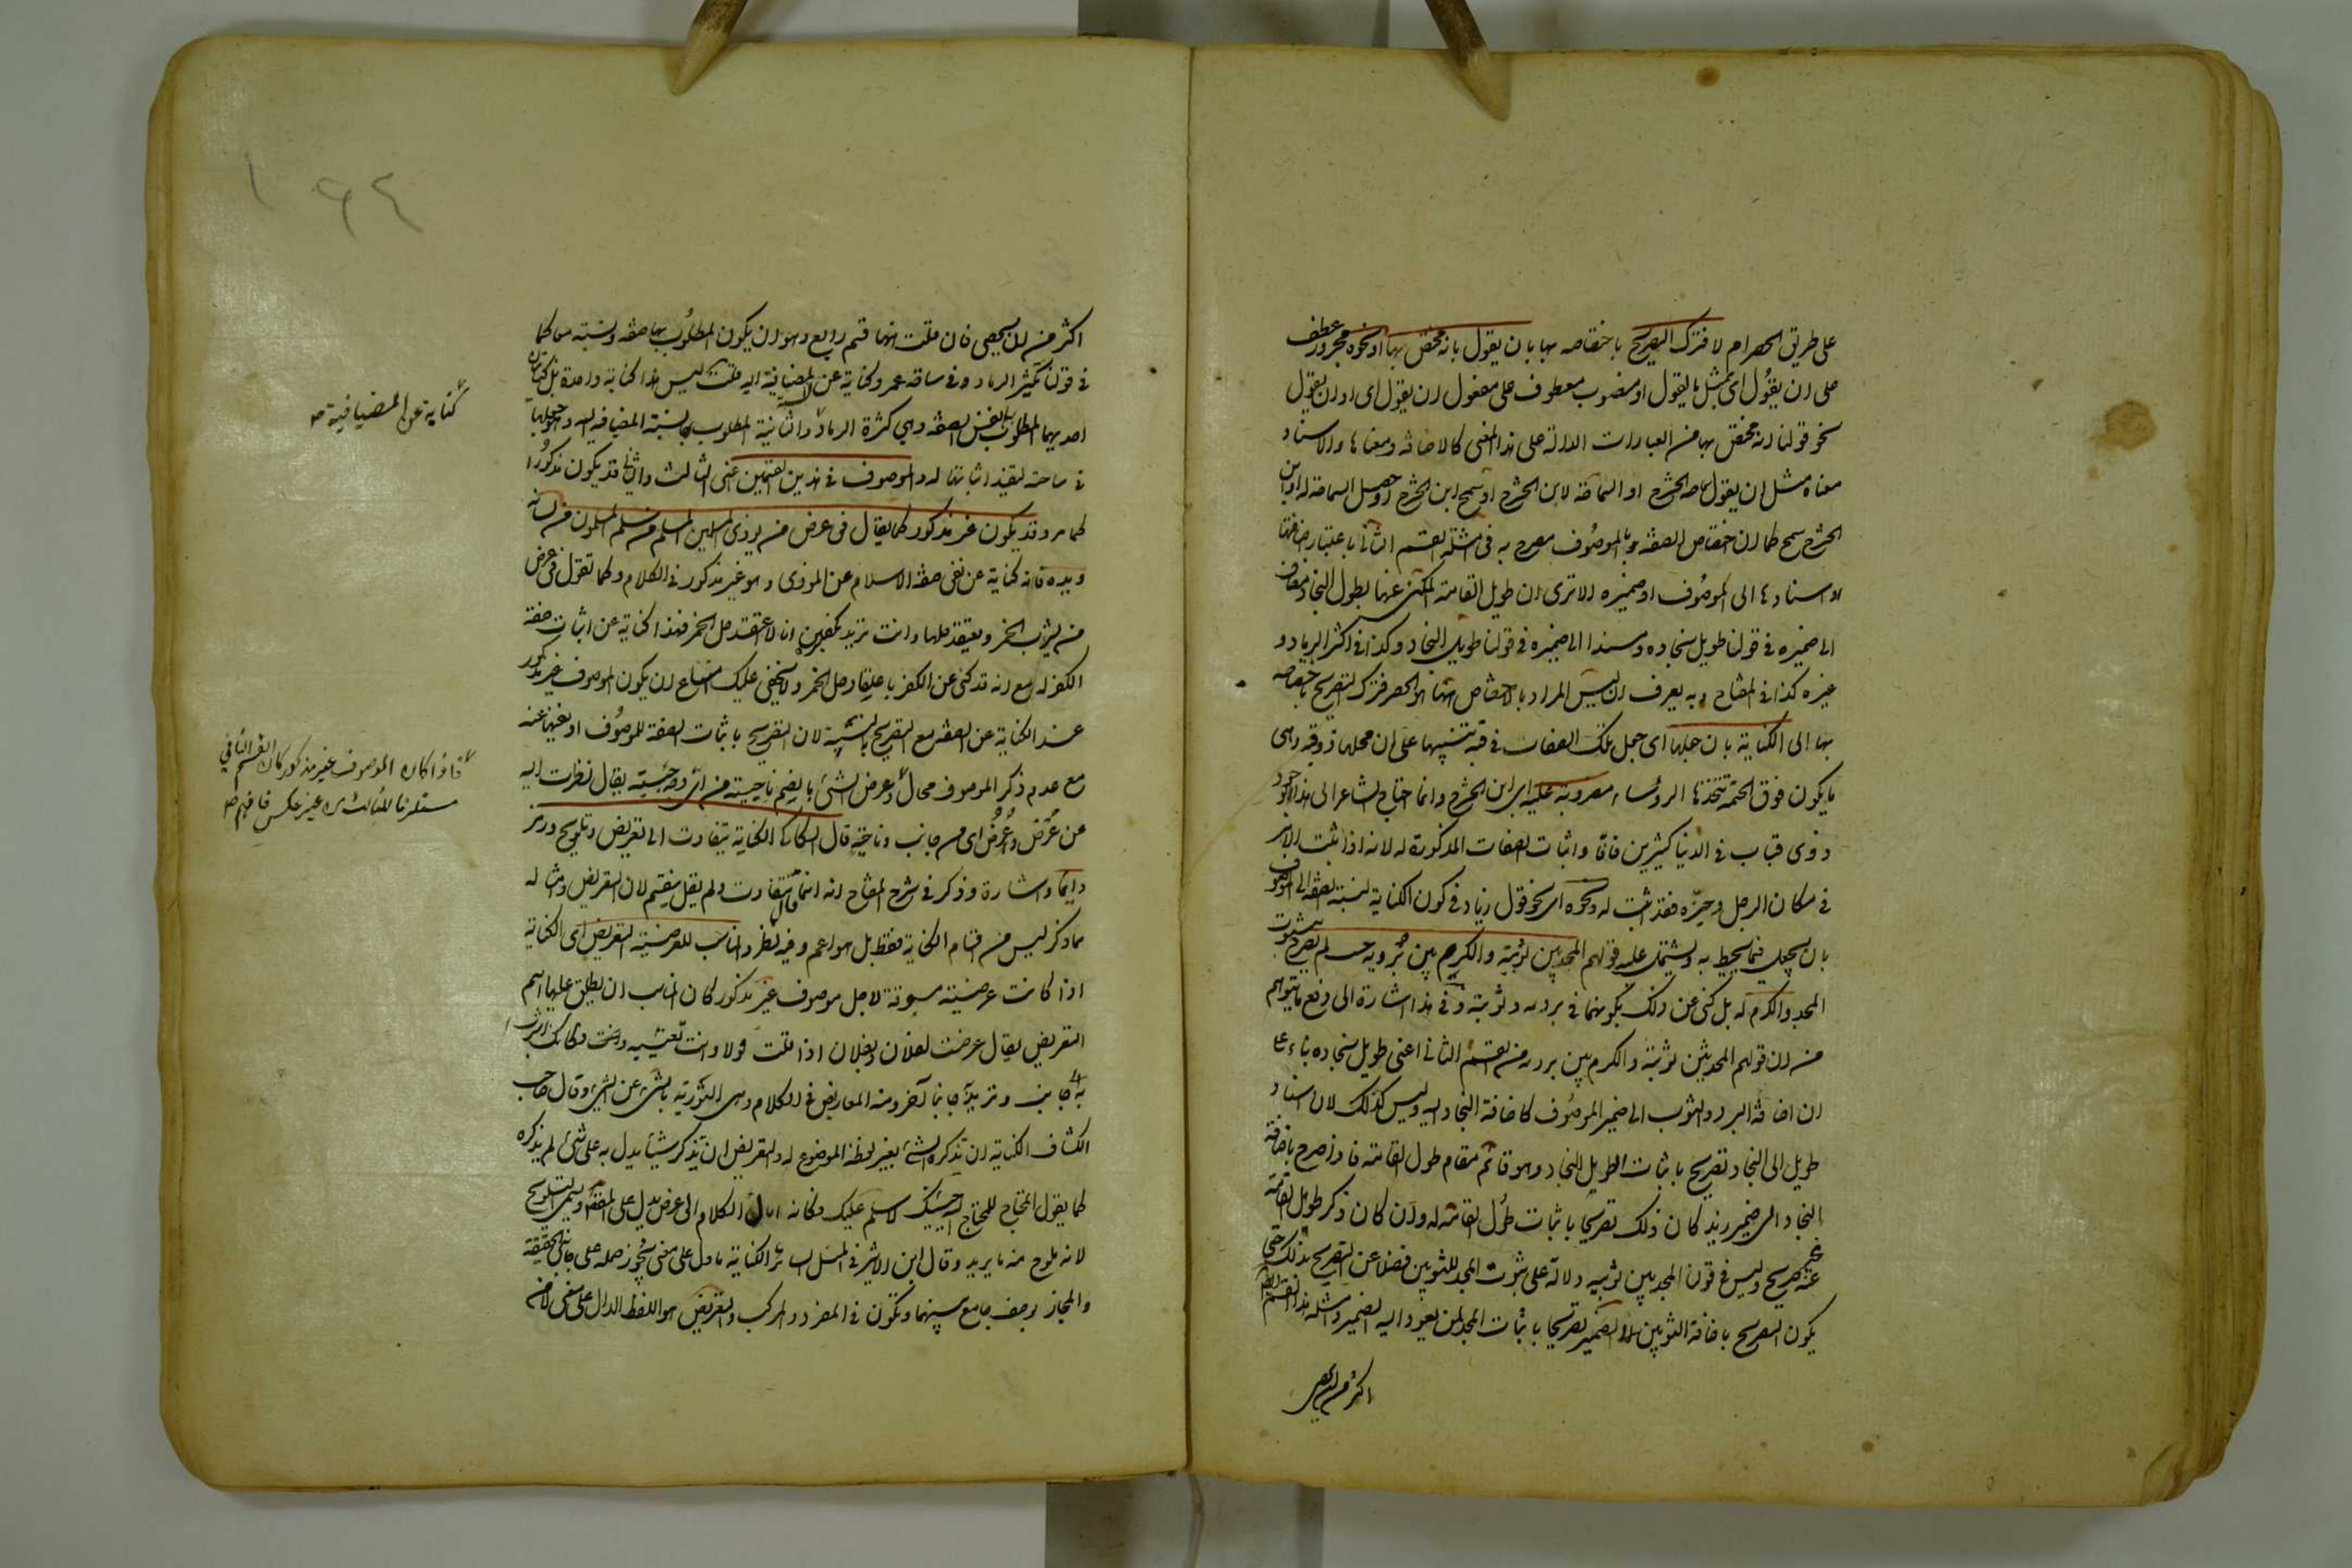 على طريق الحصر ام لا فترك التصريح باختصاصه بها بان يقول بانه مختص بها او نحوه مجرور عطف
على ان يقول اى بمثل ما يقول او منصوب معطوف على مفعول ان يقول اى او ان يقول
نحو قولنا انه مختص بها من العبارات الدالة على هذا المعنى كالاضافة ومعناها والاسناد
معناه مثل ان يقول سماحة ابن الحشرج او السماحة لابن الحشرج او سمح ابن الحشرج او حصل السماحة له او ابن
الحشرج سمح كما ان اختصاص الصفة بالموصوف مصرح به فى امثلة القسم الثانى باعتبار اضافتها
او اسنادها الى الموصوف او ضميره الا ترى ان طويل القامة المكنى عنها بطول النجاد مضاف
الى ضميره فى قولنا طويل نجاده ومسندا الى ضميره فى قولنا طويل النجاد وكذا فى كثير الرماد و
غيره كذا فى المفتاح وبه يعرف ان ليس المراد بالاختصاص ههنا هو الحصر فترك التصريح باختصاصه
بها الى الكناية بان جعلها اى جعل تلك الصفات فى قبة تنبيها على ان محلها ذو قبة وهى
ما يكون فوق الخيمة يتخذها الرؤساء مضروبة عليه اى ابن الحشرج وانما احتاج الشاعر الى هذا لوجود
ذوى قباب فى الدنيا كثيرين فافاد اثبات الصفات المذكورة له لانه اذا اثبت الامر
فى مكان الرجل وحيزه فقد اثبت له ونحوه اى نحو قول زياد فى كون الكناية لنسبة الصفة الى الموصوف
بان يجعل فيما يحيط به ويشتمل عليه قولهم المجد بين ثوبيه والكرم بين برديه حيث لم يصرح بثبوت
المجد والكرم له بل كنى عن ذلك بكونهما فى برديه وثوبيه وفى هذا اشارة الى دفع ما يتوهم
من ان قولهم المجد بين ثوبيه والكرم بين برديه من القسم الثانى اعنى طويل نجاده بناء على
ان اضافة البرد والثوب الى ضمير الموصوف كاضافة النجاد اليه وليس كذلك لان اسناد
طويل الى النجاد تصريح باثبات الطويل للنجاد وهو قائم مقام طول القامة فاذا صرح باضافة
النجاد الى ضمير زيد كان ذلك تصريحا باثبات طول القامة له وان كان ذكر طول القامة
غير صريح وليس فى قولنا المجد بين ثوبيه دلالة على ثبوت المجد للثوبين فضلا عن التصريح بذلك حتى
يكون التصريح باضافة الثوبين الى الضمير تصريحا باثبات المجد لمن يعود اليه الضمير وامثلة هذا القسم ايضا
اكثر من ان يحصى
اكثر من ان يحصى فان قلت ههنا قسم رابع وهو ان يكون المطلوب بها صفة ونسبة معا كما
فى قولنا كثير الرماد فى ساحة عمرو كناية عن المضيافية اليه قلت ليس هذا كناية واحدة بل كنايتان
احديهما المطلوب بها نفس الصفة وهى كثرة الرماد والثانية المطلوب بها نسبة المضيافية اليه وهو جعلها
فى ساحته ليفيد اثباتها له والموصوف فى هذين القسمين اعنى الثالث والثانى قد يكون مذكورا
كما مر وقد يكون غير مذكور كما يقال فى عرض من يوذى المسلمين المسلم من سلم المسلمون من لسانه
ويده فانه كناية عن نفى صفة الاسلام عن الموذى وهو غير مذكور فى الكلام وكما تقول فى عرض
من يشرب الخمر ويعتقد حلها وانت تريد تكفيره انا لا اعتقد حل الخمر فهذا كناية عن اثبات صفة
الكفر له مع انه قد كنى عن الكفر باعتقاد حل الخمر ولا يخفى عليك امتناع ان يكون الموصوف غير مذكور
عند الكناية عن الصفة مع التصريح بالنسبة لان التصريح باثبات الصفة للموصوف او نفيها عنه
مع عدم ذكر الموصوف محال وعرض الشئ بالضم ناحيته من اى وجه جئته يقال نظرت اليه
عن عرض وعرض اى من جانب وناحية قال السكاكى الكناية يتفاوت الى تعريض وتلويح ورمز
وايماء واشارة وذكر فى شرح المفتاح انه انما قال تتفاوت ولم يقل ينقسم لان التعريض وامثاله
مما ذكر ليس من اقسام الكناية فقط بل هو اعم وفيه نظر والمناسب للعرضية التعريض اى الكناية
اذا كانت عرضية مسوقة لاجل موصوف غير مذكور كان المناسب ان يطلق عليها اسم
التعريض يقال عرضت لفلان وبفلان اذا قلت قولا وانت تعنيه وكانك اشرت
به الى جانب وتريد جانبا آخر ومنه المعاريض فى الكلام وهى التورية بالشئ عن الشئ وقال صاحب
الكشاف الكناية ان تذكر الشئ بغير لفظه الموضوع له والتعريض ان تذكر شيئا يدل به على شئ لم يذكره
كما يقول المحتاج للمحتاج اليه جئتك لاسلم عليك فكانه امال الكلام الى عرض يدل على المقصود ويسمى التلويح
لانه يلوح منه ما يريد وقال ابن الاثير فى المثل السائر الكناية ما دل على معنى يجوز حمله على جانبى الحقيقة
والمجاز بوصف جامع بينهما وتكون فى المفرد والمركب والتعريض هو اللفظ الدال على معنى لا من
كناية عن المضيافية
فاذا كان الموصوف غير مذكور كان القسم الثانى
مستلزما للثالث من غير عكس فافهم
١٦٤